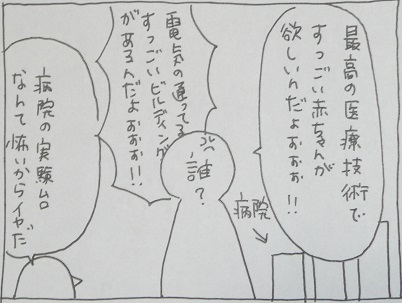 最高の医療技術で
すっごい赤ちゃんが
欲しいんだよぉぉぉ!!
病院
電気の通ってる
すっごいビルディング
があるんだよぉぉぉ!!
誰?
病院の実験室
なんて怖いからイヤだ